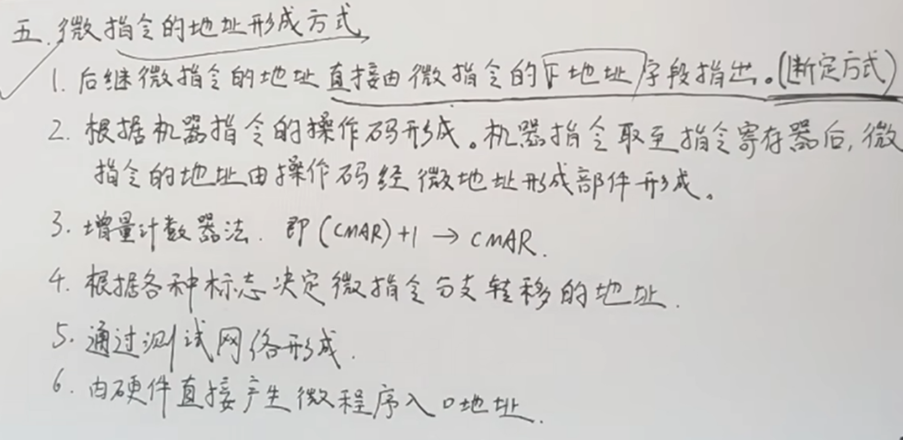 五.微指令的地址形成方式
1. 后继微指令的地址直接由微指令的下地址字段指出。(断定方式)
2. 根据机器指令的操作码形成。机器指令取至指令寄存器后,微
指令的地址由操作码经微地址形成部件形成。
3. 增量计数器法. 即(CMAR)+1 → CMAR.
4. 根据各种标志决定微指令分支转移的地址.
5. 通过测试网络形成.
6. 由硬件直接产生微程序入口地址.